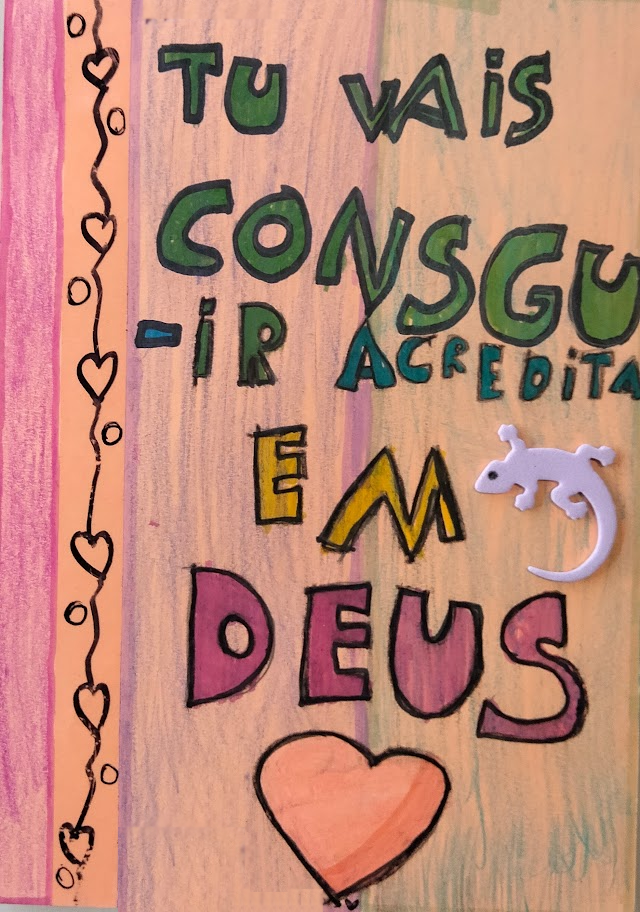 TU VAIS
CONSGU
-IR ACREDITA
EM
DEUS